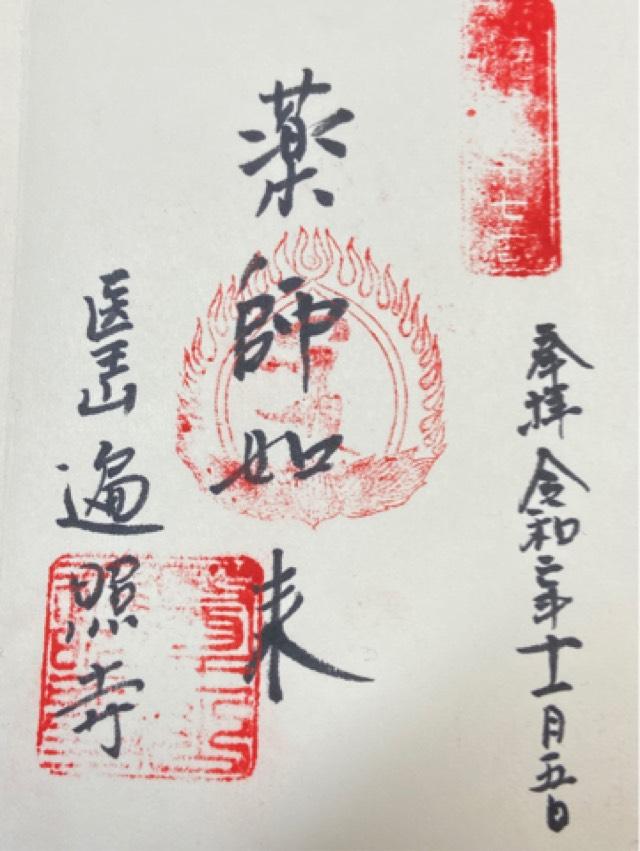 奉拝 令和二年十一月五日
薬師如来
医王山 遍照寺